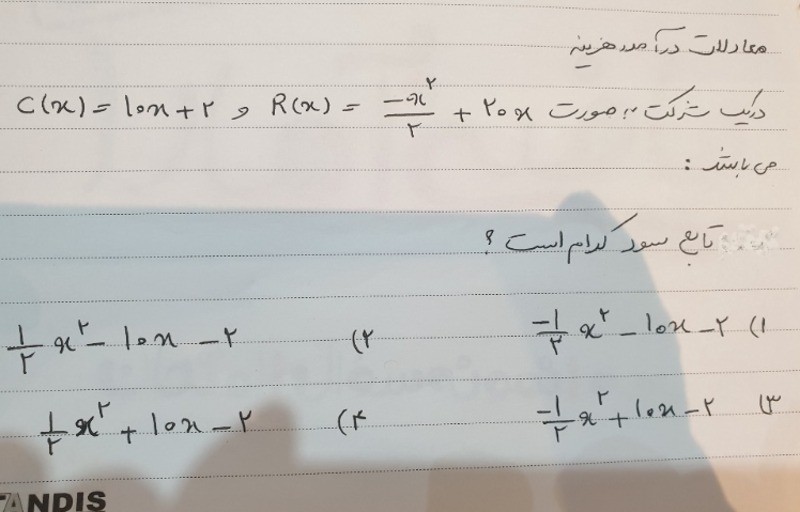 معادلات درآمد هزینه
در یک شرکت به صورت R(x) = \frac{-x^۲}{۲} + ۲۰x و C(x) = ۱۰x + ۲
می باشد :
تابع سود کدام است ؟
۱) \frac{-۱}{۲} x^۲ - ۱۰x - ۲ ۲) \frac{۱}{۲} x^۲ - ۱۰x - ۲
۳) \frac{-۱}{۲} x^۲ + ۱۰x - ۲ ۴) \frac{۱}{۲} x^۲ + ۱۰x - ۲
TANDIS